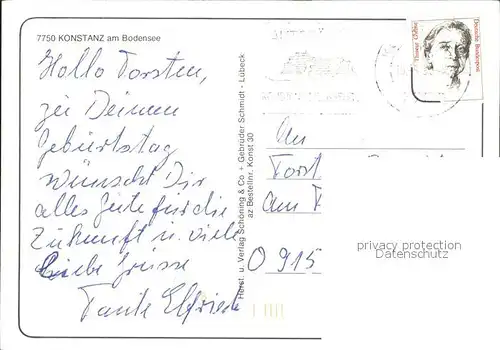 7750 KONSTANZ am Bodensee
Hallo Torsten,
zu Deinem
Geburtstag
wünscht Dir
alles Gute für die
Zukunft u. viele
Liebe Grüsse
Tante Elfriede
Herst. u. Verlag Schöning & Co + Gebrüder Schmidt · Lübeck
az Bestellnr. Konst 30
An
Torst
Am
O 915
Deutsche Bundespost
privacy protection
Datenschutz